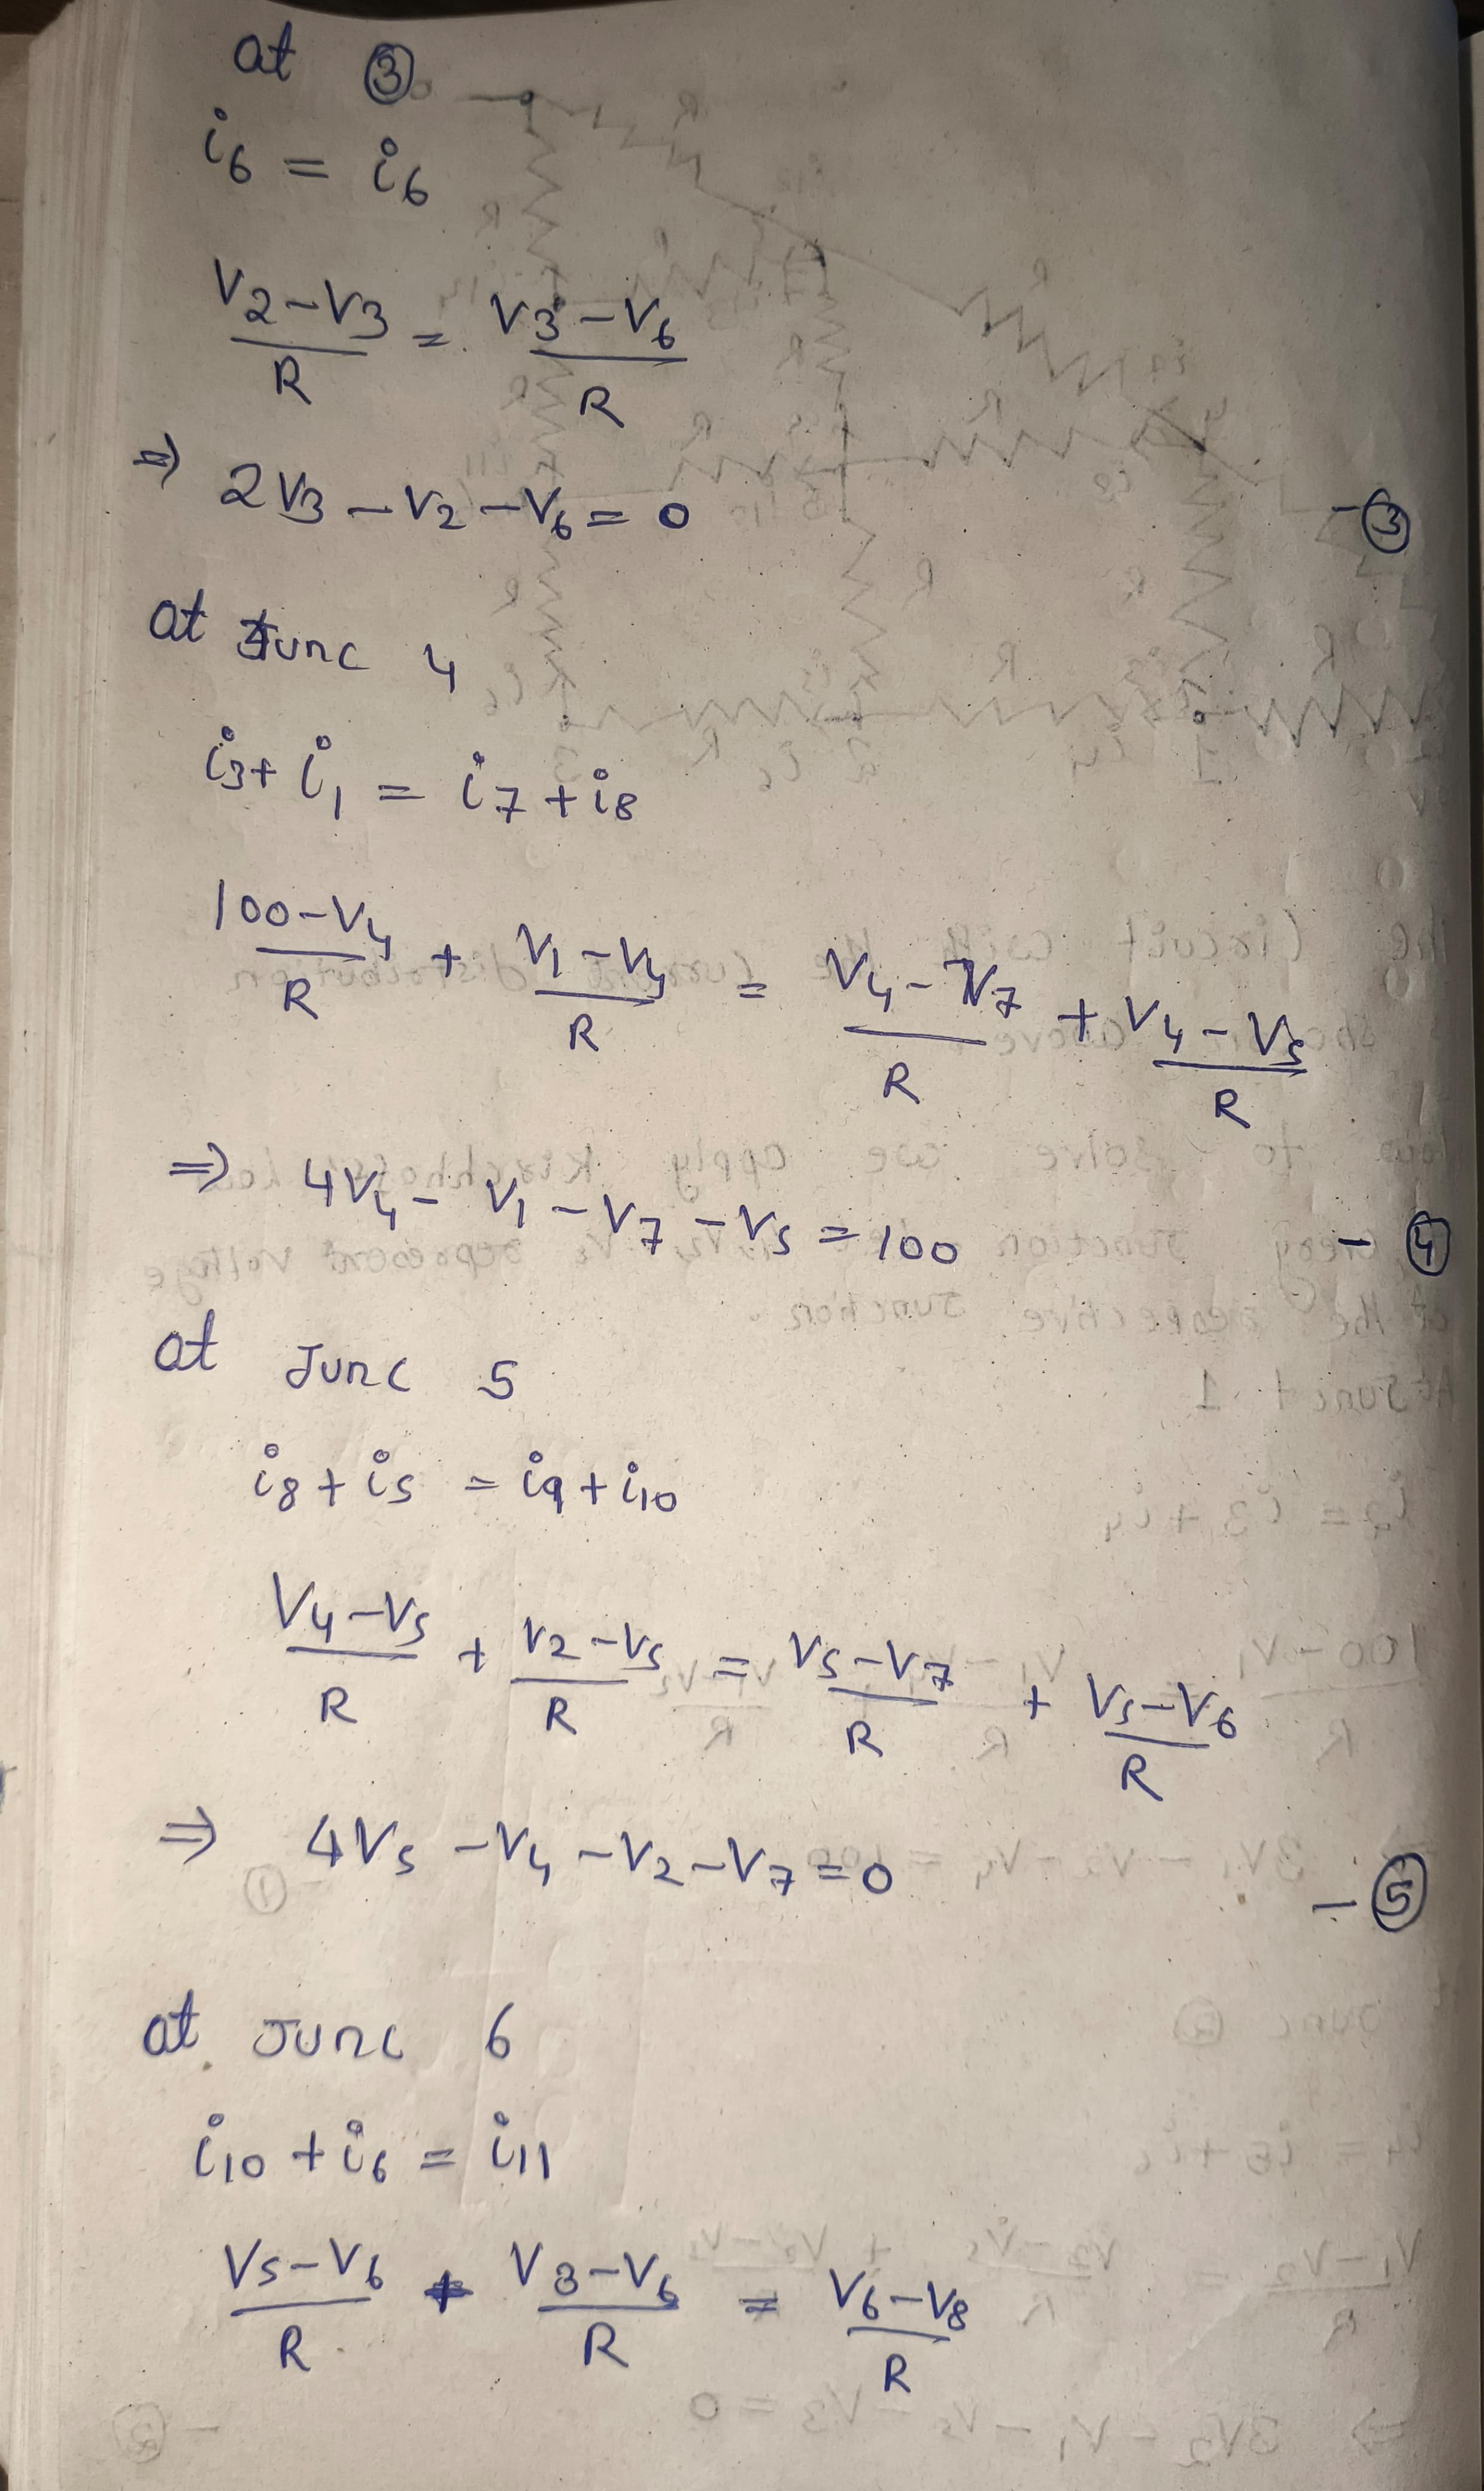 at ③
i6 = i6
V2-V3/R = V3-V6/R
⇒ 2V3 - V2 - V6 = 0 - ③
at Junc 4
i3 + i1 = i7 + i8
100-V4/R + V1-V4/R = V4-V7/R + V4-V5/R
⇒ 4V4 - V1 - V7 - V5 = 100 - ④
at Junc 5
i8 + i5 = i9 + i10
V4-V5/R + V2-V5/R = V5-V7/R + V5-V6/R
⇒ 4V5 - V4 - V2 - V7 = 0 - ⑤
at Junc 6
i10 + i6 = i11
V5-V6/R + V3-V6/R = V6-V8/R